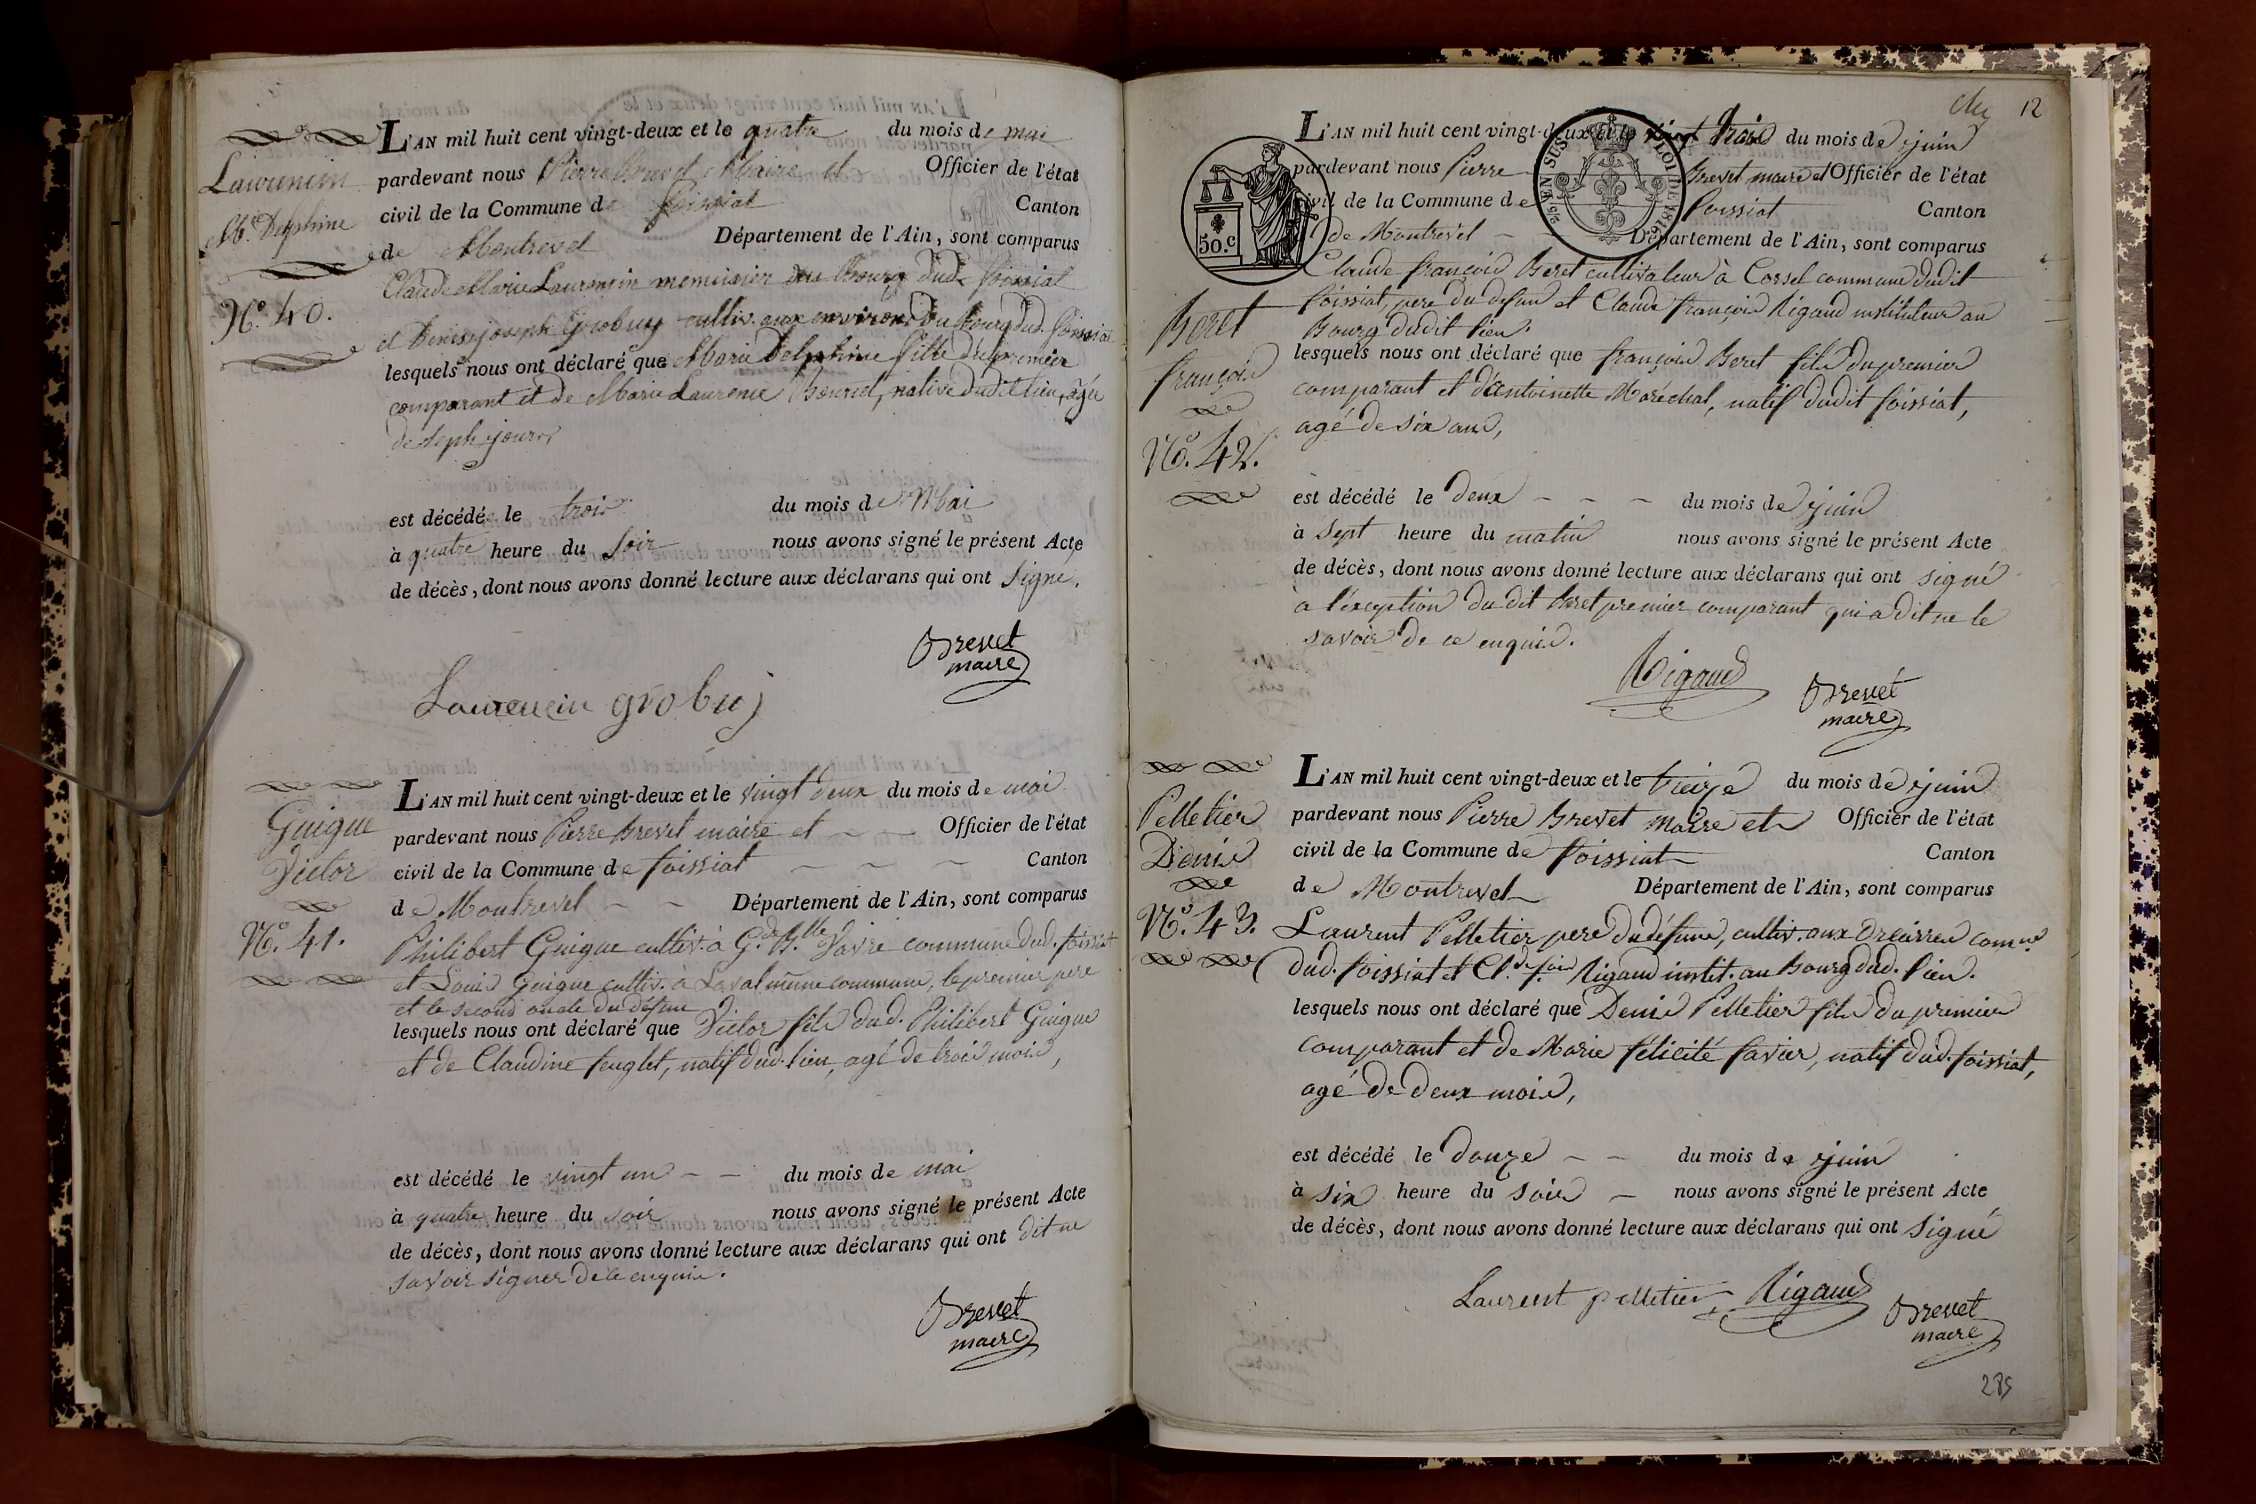 Laurencin
M.e Delphine
N.o 40.
L'AN mil huit cent vingt-deux et le quatre du mois de mai
pardevant nous Pierre Brevet Maire et Officier de l'état
civil de la Commune de foissiat Canton
de Montrevel Département de l'Ain, sont comparus
Claude Marie Laurencin menuisier au Bourg dud. foissiat
et Denis joseph Grobuy cultiv. aux environs du Bourg dud. foissiat
lesquels nous ont déclaré que Marie Delphine fille du premier
comparant et de Marie Laurence native dudit lieu, agée
de Sept jours
est décédée le trois du mois de Mai
à quatre heure du soir nous avons signé le présent Acte
de décès, dont nous avons donné lecture aux déclarans qui ont signé.
Brevet
maire
Laurencin grobuy
Guigue
Victor
N.o 41.
L'AN mil huit cent vingt-deux et le vingt deux du mois de mai
pardevant nous Pierre Brevet maire et Officier de l'état
civil de la Commune de foissiat Canton
de Montrevel Département de l'Ain, sont comparus
Philibert Guigue cultiv. à commune dud. foissiat
et Louis Guigue cultiv. à Laval même commune, le premier pere
et le second oncle du défunt
lesquels nous ont déclaré que Victor fils dud. Philibert Guigue
et de Claudine feuglet, natif dud. lieu, agé de trois mois,
est décédé le vingt un du mois de mai
à quatre heure du soir nous avons signé le présent Acte
de décès, dont nous avons donné lecture aux déclarans qui ont dit ne
savoir signer de ce enquis.
Brevet
maire
12
50.c
EN SUS
LOI DE 1816
Beret
françois
N.o 42.
L'AN mil huit cent vingt-deux et le trois du mois de juin
pardevant nous Pierre Brevet maire et Officier de l'état
civil de la Commune de foissiat Canton
de Montrevel Département de l'Ain, sont comparus
Claude françois Beret cultivateur à Cossel commune dudit
foissiat, pere du defunt et Claude françois Rigaud instituteur au
Bourg dudit lieu.
lesquels nous ont déclaré que françois Beret fils du premier
comparant et d'antoinette Maréchal, natif dudit foissiat,
agé de six ans,
est décédé le deux du mois de juin
à sept heure du matin nous avons signé le présent Acte
de décès, dont nous avons donné lecture aux déclarans qui ont signé
à l'exception du dit Beret premier comparant qui a dit ne le
savoir de ce enquis.
Rigaud
Brevet
maire
Pelletier
Denis
N.o 43.
L'AN mil huit cent vingt-deux et le treize du mois de juin
pardevant nous Pierre Brevet maire et Officier de l'état
civil de la Commune de foissiat Canton
de Montrevel Département de l'Ain, sont comparus
Laurent Pelletier pere du défunt, cultiv. aux com.ne
dud. foissiat et Cl.de f.ois Rigaud instit. au Bourg dud. lieu.
lesquels nous ont déclaré que Denis Pelletier fils du premier
comparant et de Marie félicité favier, natif dud. foissiat,
agé de deux mois,
est décédé le douze du mois de juin
à six heure du soir nous avons signé le présent Acte
de décès, dont nous avons donné lecture aux déclarans qui ont signé
Laurent pelletier Rigaud
Brevet
maire
285